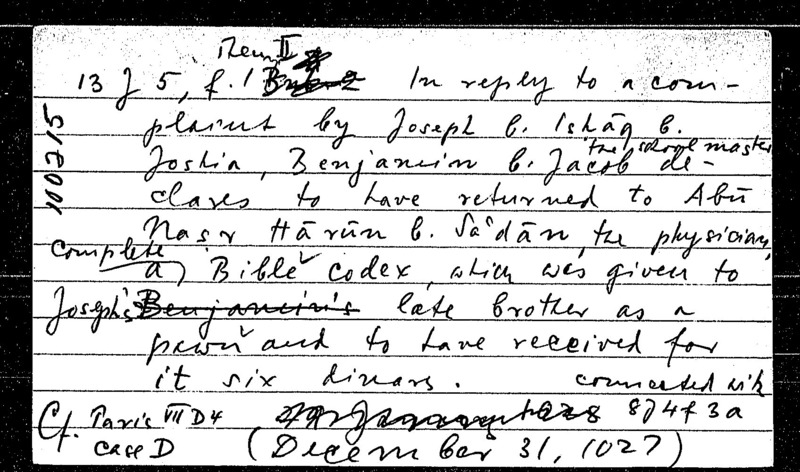 Item II
13 J 5, f. 1 In reply to a com-
plaint by Joseph b. Isḥāq b.
the school master
Joshia, Benjamin b. Jacob de-
clares to have returned to Abū
Naṣr Hārūn b. Ṣāʿdān, the physician,
complete
a Bible codex, which was given to
Joseph's Benjamin's late brother as a
pawn and to have received for
it six dinars. connected with
Cf. Paris VII D 4 8 J 4 f 3a
case D (December 31, 1027)
100215